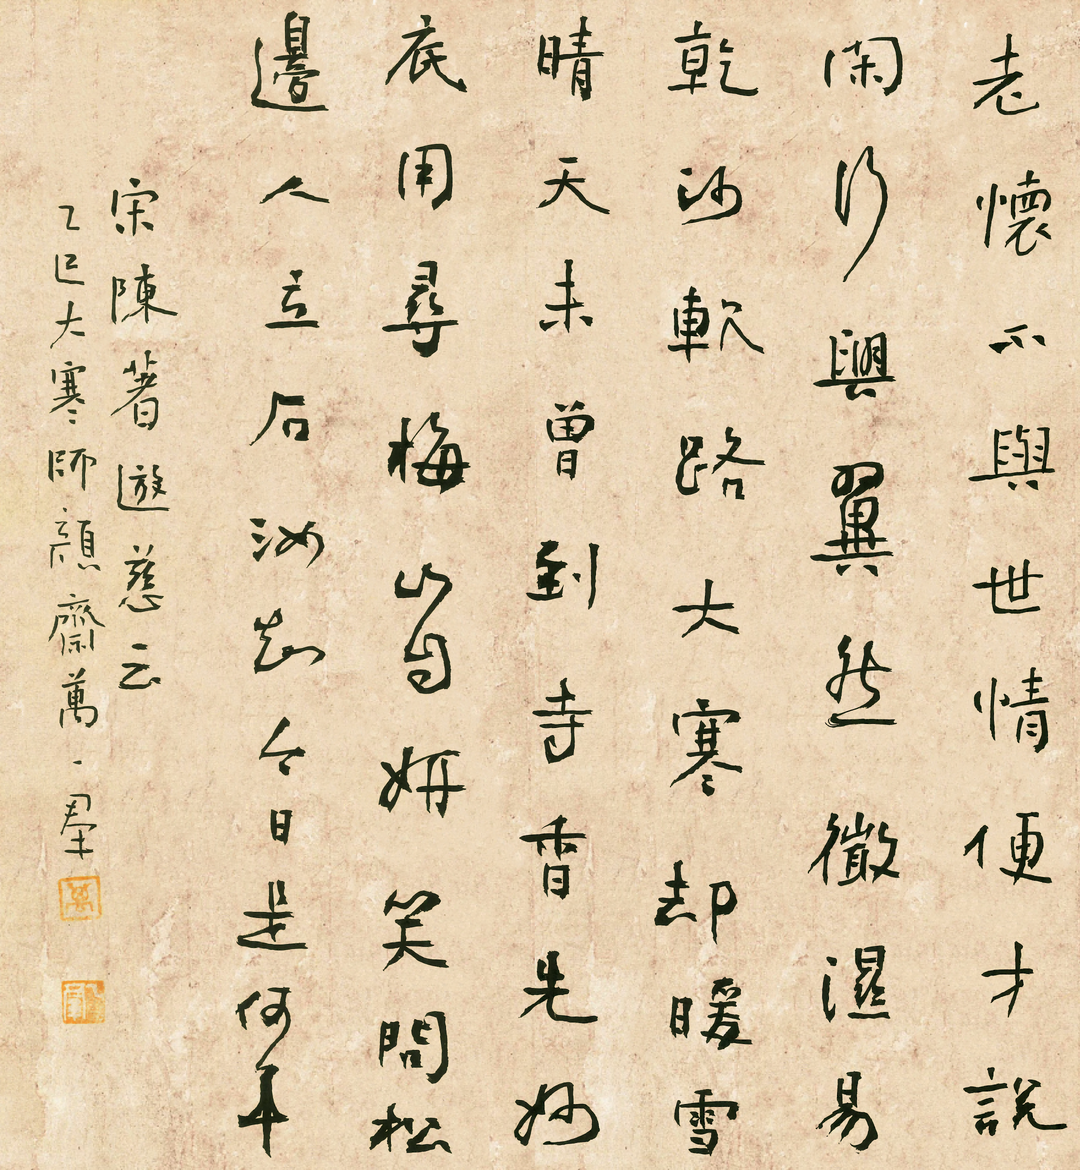 老懷不與世情便才說
閑行興翼然微濕易
乾沙軟路大寒却暖雪
晴天未曾到寺香先妙
底用尋梅山自妍笑問松
邊人立石汝知今日是何年
宋陳著遊慈云
乙巳大寒師顏齋萬一羣